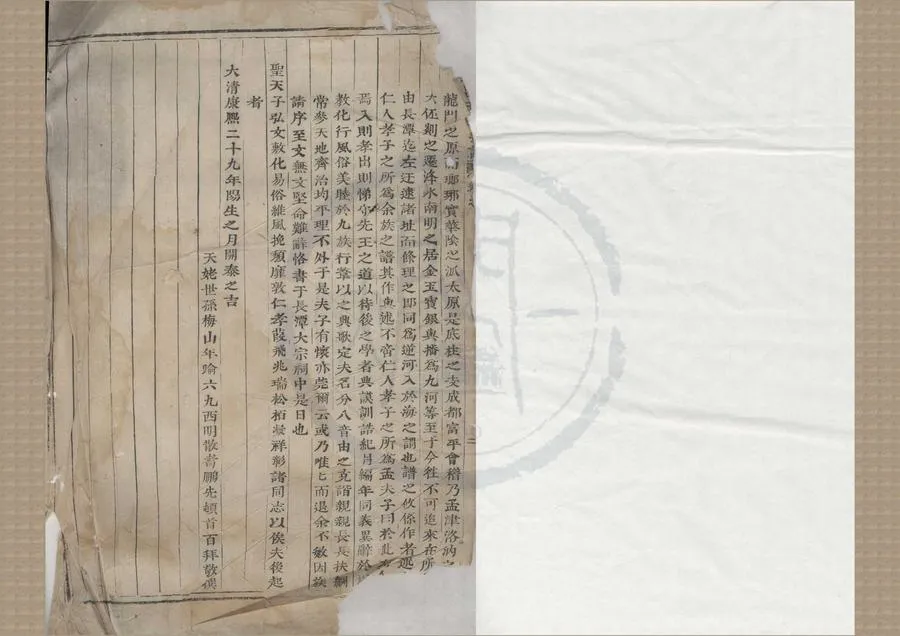 龍門之原而瑯琊實華陰之派太原是底柱之支成都富平會稽乃孟津洛汭之
大伾剡之遷洚水南明之居金玉寶銀與播為九河等至于今往不可追來在所
由長潭迄左迂逮諸址而條理之即同為逆河入於海之謂也譜之攸係作者述
仁人孝子之所為余族之譜其作與述不啻仁人孝子之所為孟夫子曰於此有
焉入則孝出則悌守先王之道以待後之學者典謨訓誥紀月編年同義異辭於
教化行風俗美睦於九族行葦以之興歌定夫名分八音由之克諧親親長長扶綱
常參天地齊治均平理不外于是夫子有懷亦莞爾云或乃唯匕而退余不敏因族
請序至文無文堅命難辭恪書于長潭大宗祠中是日也
聖天子弘文敷化易俗維風挽頹靡敦仁孝葭飛兆瑞松栢凝祥彰諸同志以俟夫後起
者
大清康熙二十九年陽生之月開泰之吉
天姥世孫梅山年踰六九西明散耆鵬先頓首百拜敬撰